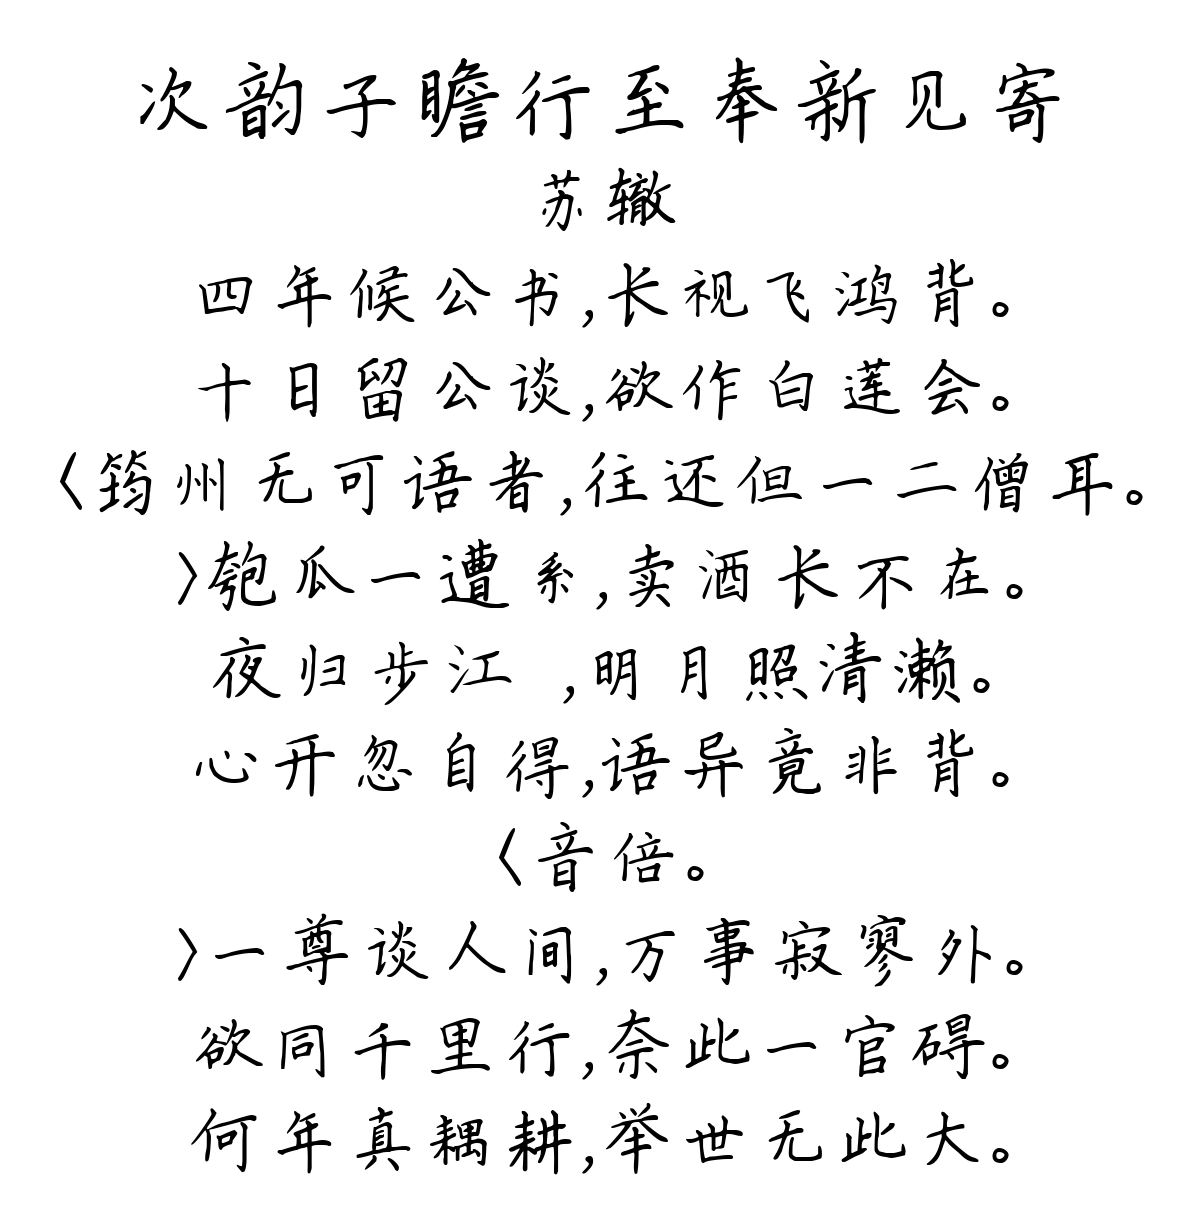 次韵子瞻行至奉新见寄
苏辙
四年候公书,长视飞鸿背。
十日留公谈,欲作白莲会。
〈筠州无可语者,往还但一二僧耳。
〉匏瓜一遭系,卖酒长不在。
夜归步江 ,明月照清濑。
心开忽自得,语异竟非背。
〈音倍。
〉一尊谈人间,万事寂寥外。
欲同千里行,奈此一官碍。
何年真耦耕,举世无此大。